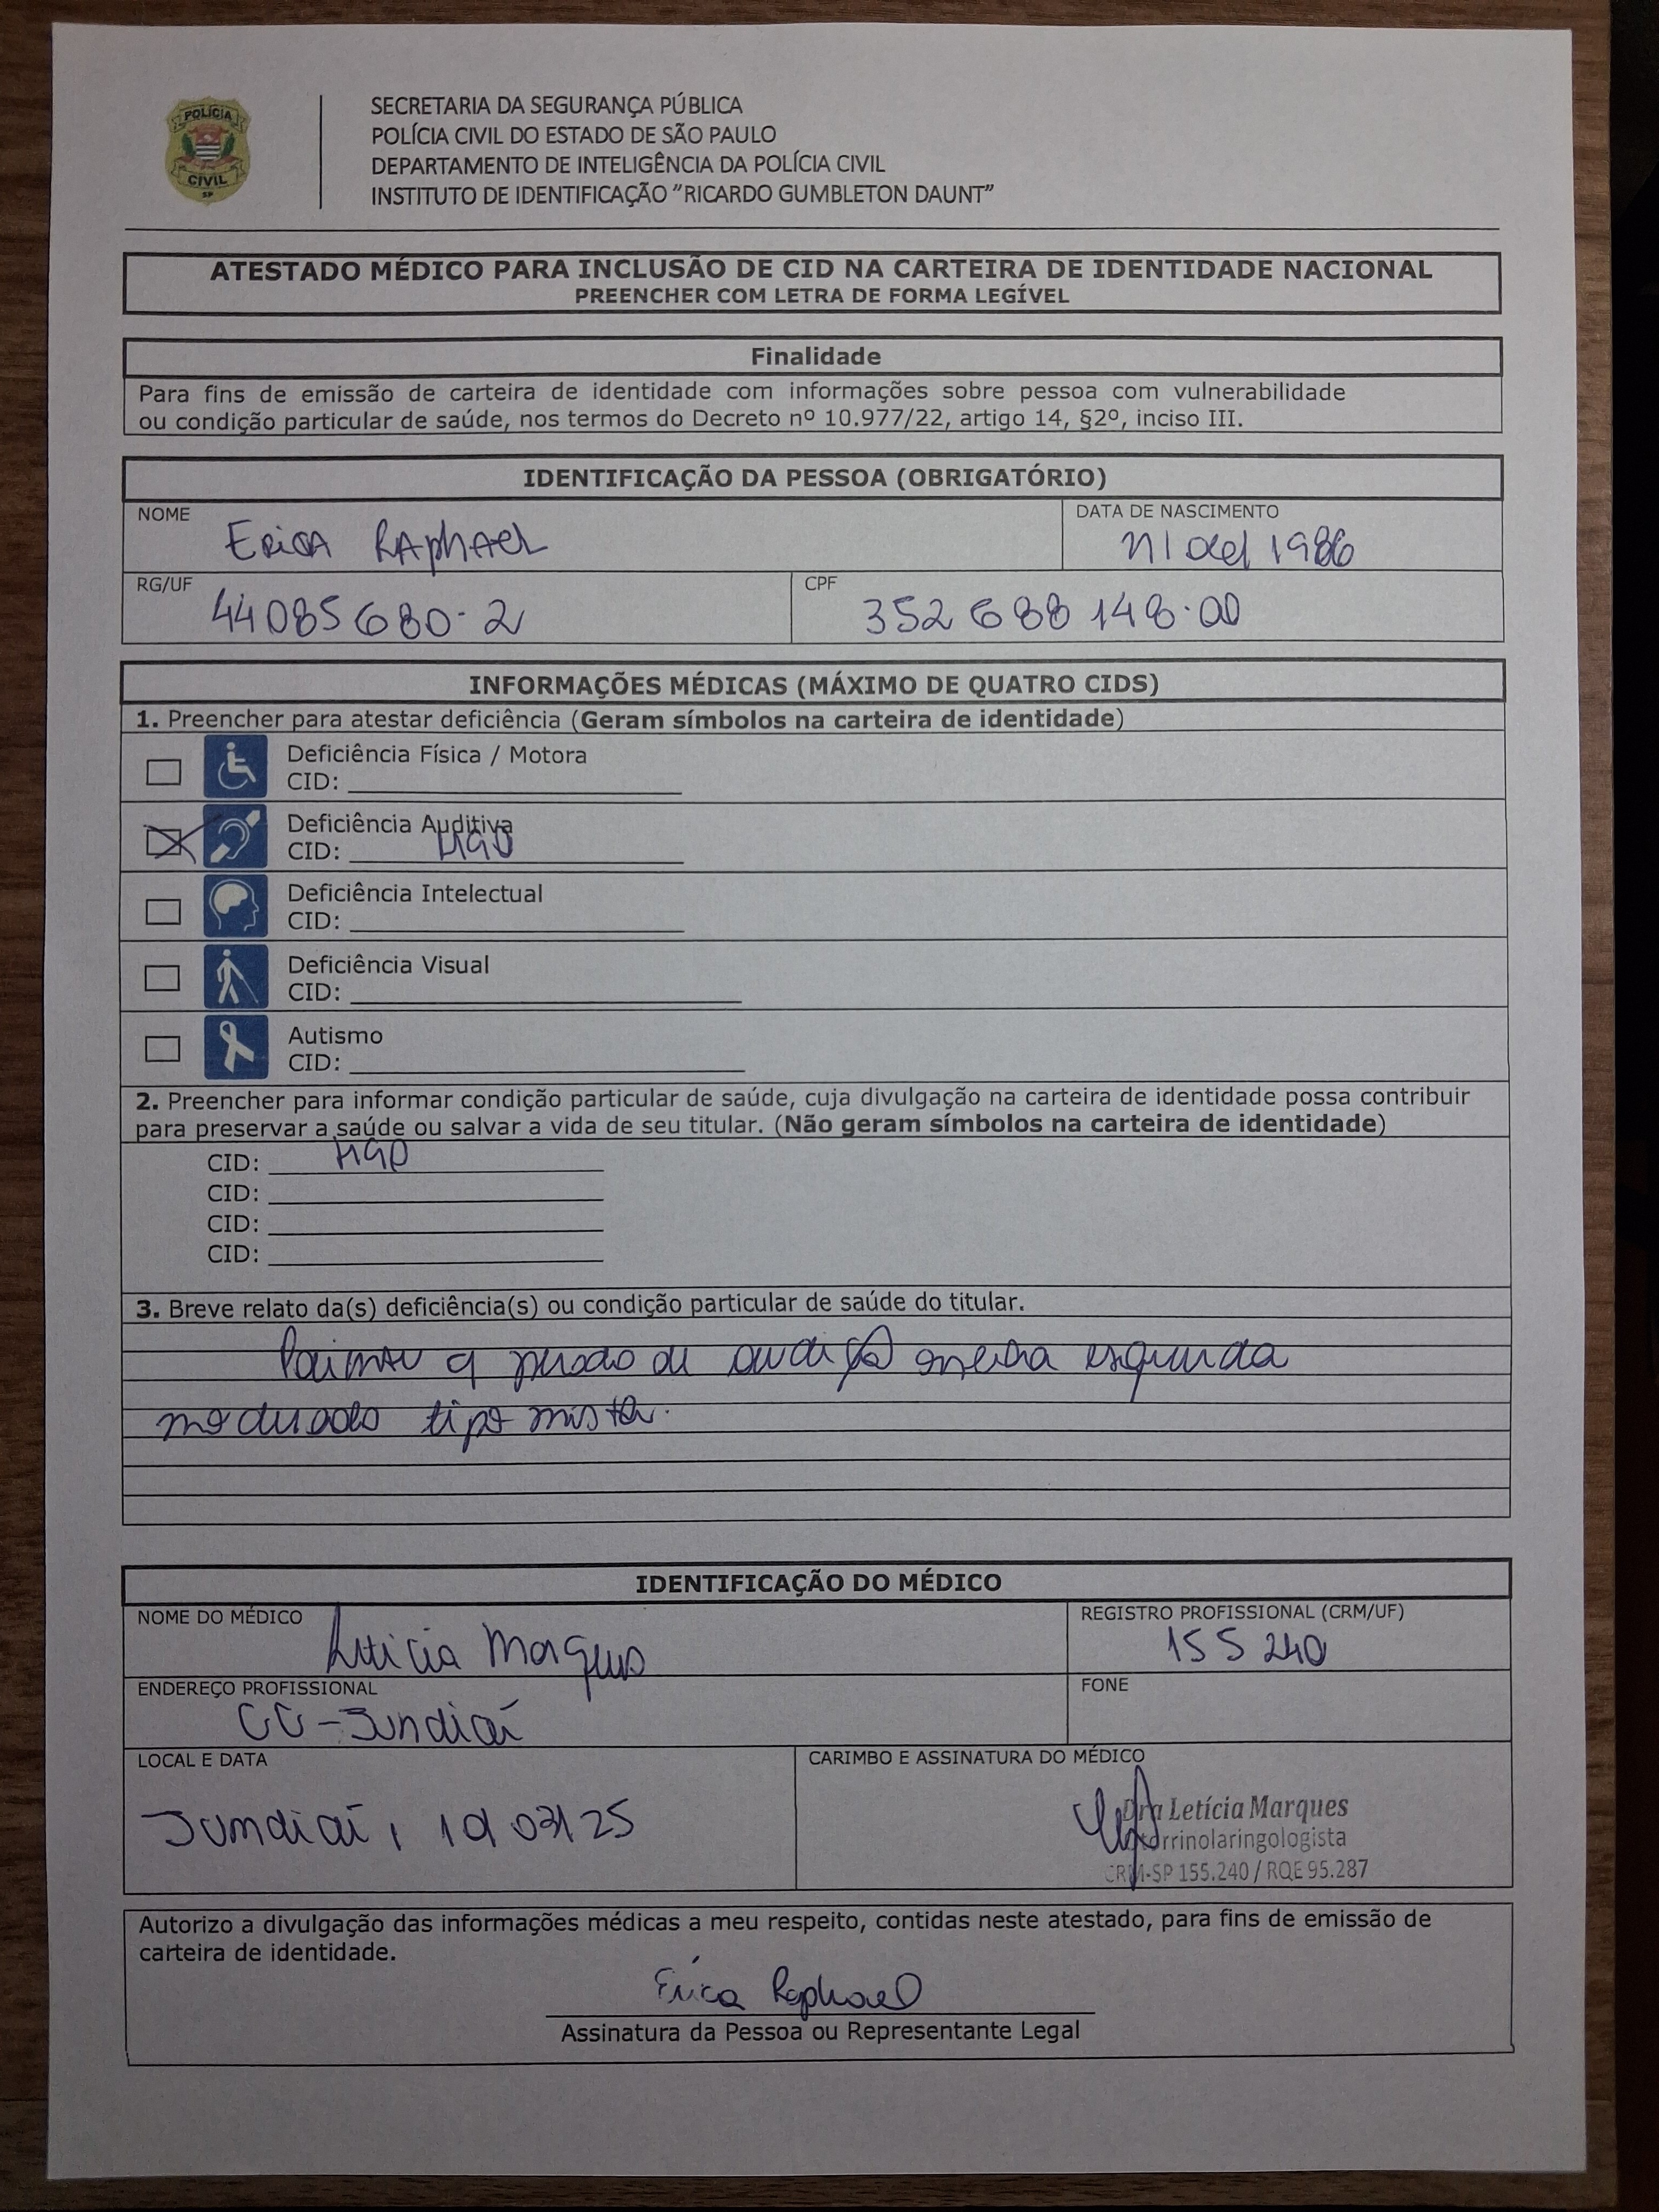 POLÍCIA
CIVIL
SP
SECRETARIA DA SEGURANÇA PÚBLICA
POLÍCIA CIVIL DO ESTADO DE SÃO PAULO
DEPARTAMENTO DE INTELIGÊNCIA DA POLÍCIA CIVIL
INSTITUTO DE IDENTIFICAÇÃO “RICARDO GUMBLETON DAUNT”
ATESTADO MÉDICO PARA INCLUSÃO DE CID NA CARTEIRA DE IDENTIDADE NACIONAL
PREENCHER COM LETRA DE FORMA LEGÍVEL
Finalidade
Para fins de emissão de carteira de identidade com informações sobre pessoa com vulnerabilidade
ou condição particular de saúde, nos termos do Decreto nº 10.977/22, artigo 14, §2º, inciso III.
IDENTIFICAÇÃO DA PESSOA (OBRIGATÓRIO)
NOME
Erica Raphael
DATA DE NASCIMENTO
1986
RG/UF
44085680-2
CPF
352 688 148-00
INFORMAÇÕES MÉDICAS (MÁXIMO DE QUATRO CIDS)
1. Preencher para atestar deficiência (Geram símbolos na carteira de identidade)
Deficiência Física / Motora
CID:
Deficiência Auditiva
CID: H90
Deficiência Intelectual
CID:
Deficiência Visual
CID:
Autismo
CID:
2. Preencher para informar condição particular de saúde, cuja divulgação na carteira de identidade possa contribuir
para preservar a saúde ou salvar a vida de seu titular. (Não geram símbolos na carteira de identidade)
CID: H90
CID:
CID:
CID:
3. Breve relato da(s) deficiência(s) ou condição particular de saúde do titular.
de audição orelha esquerda
tipo mista.
IDENTIFICAÇÃO DO MÉDICO
NOME DO MÉDICO
Leticia Marques
REGISTRO PROFISSIONAL (CRM/UF)
155 240
ENDEREÇO PROFISSIONAL
Jundiaí
FONE
LOCAL E DATA
Jundiaí,
CARIMBO E ASSINATURA DO MÉDICO
Dra Letícia Marques
Otorrinolaringologista
CRM-SP 155.240 / RQE 95.287
Autorizo a divulgação das informações médicas a meu respeito, contidas neste atestado, para fins de emissão de
carteira de identidade.
Erica Raphael
Assinatura da Pessoa ou Representante Legal